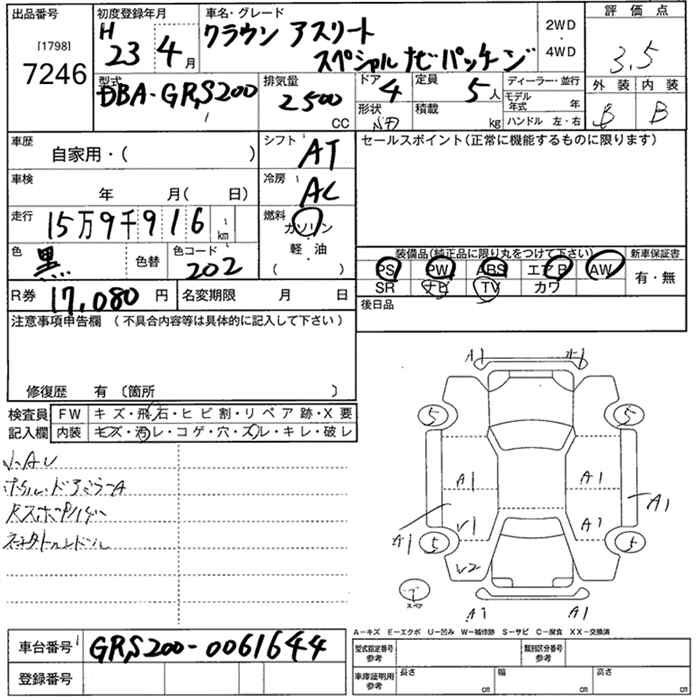 出品番号
[1798]
7246
初度登録年月
H 23 4月
車名・グレード
クラウン アスリート
スペシャルナビパッケージ
2WD
・
4WD
評価点
3.5
外装 内装
B B
型式
DBA-GRS200
排気量
2500
CC
ドア
4
定員
5人
形状
積載
kg
ディーラー・並行
モデル年式 年
ハンドル 左・右
車歴
自家用・( )
シフト
AT
車検
年 月( 日)
冷房
AC
走行
15万9千916 km
燃料
ガソリン
軽・油
( )
色
黒
色替
色コード
202
R券 17,080円
名変期限 月 日
セールスポイント(正常に機能するものに限ります)
装備品(純正品に限り丸をつけて下さい)
PS PW ABS エアB AW
SR ナビ TV カワ
新車保証書
有・無
後日品
注意事項申告欄(不具合内容等は具体的に記入して下さい)
修復歴 有〔箇所 〕
検査員記入欄
FW キズ・飛石・ヒビ割・リペア跡・X要
内装 キズ・汚レ・コゲ・穴・スレ・キレ・破レ
小AU
A1
5 5
A1 A1
A1
A1
5 5
V2
スペア
A1
A-キズ E-エクボ U-凹み W-補修跡 S-サビ C-腐食 XX-交換済
車台番号 GRS200-0061644
登録番号
型式指定番号
参考
類別区分番号
参考
車庫証明用
参考
長さ cm
幅 cm
高さ cm